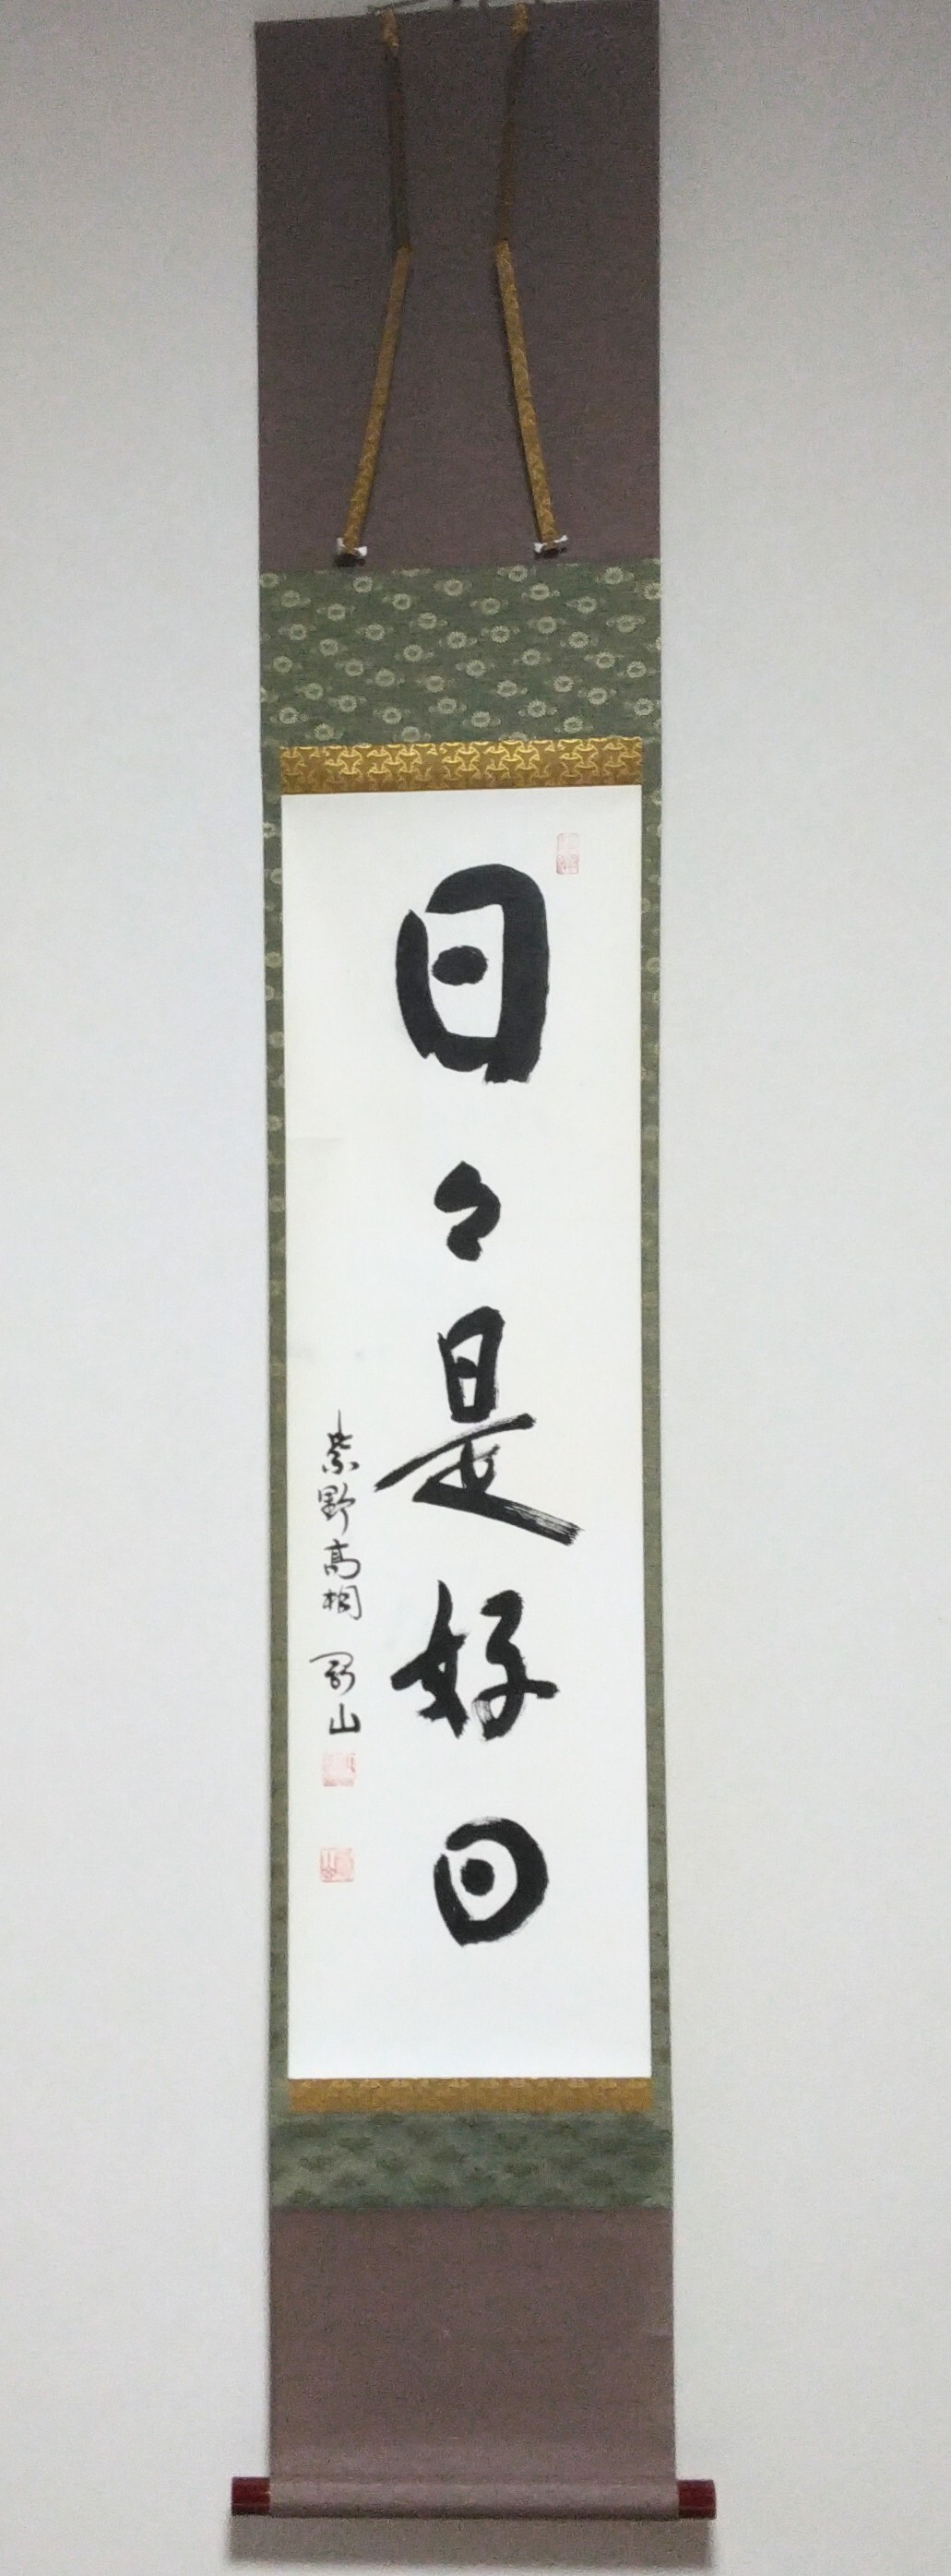 日々是好日
紫野高桐 剛山